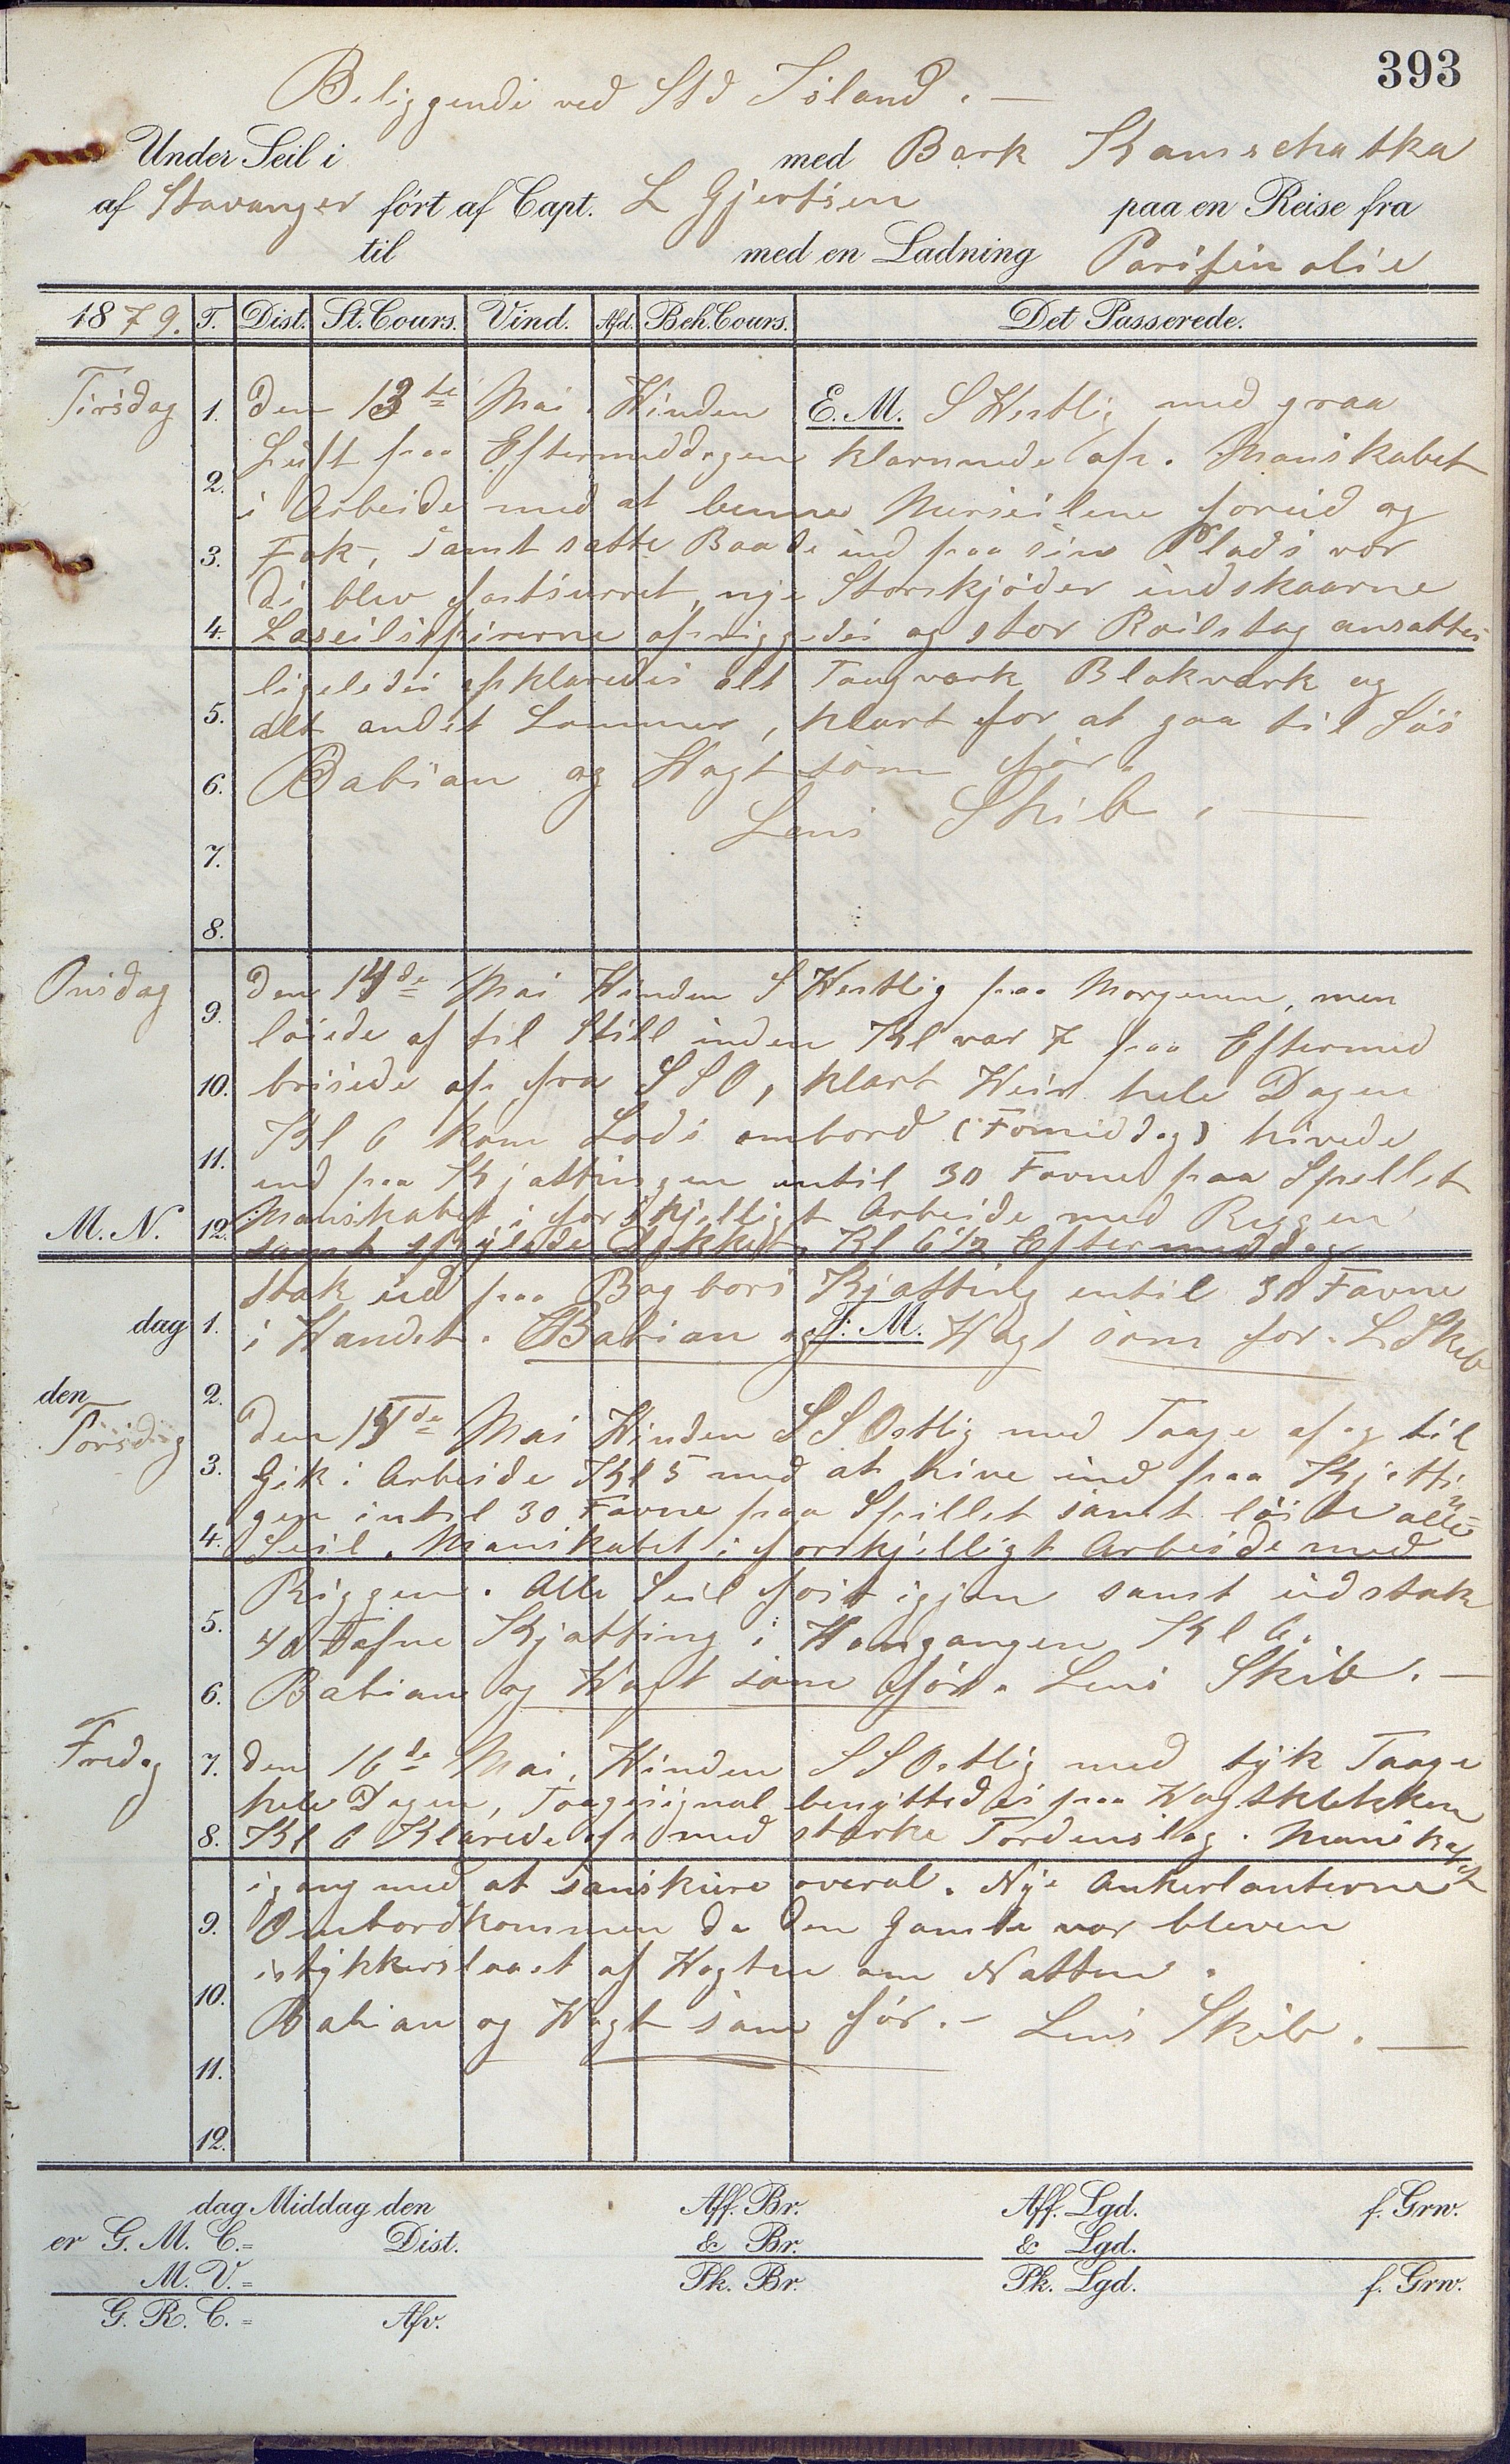 393
Beliggende ved Std Island. —
Under Seil i med Bark Kamschatka
af Stavanger ført af Capt. L Gjertsen paa en Reise fra
til med en Ladning Parifin olie
1879. T. Dist. St. Cours. Vind. Afd. Beh. Cours. Det Passerede.
Tirsdag 1. Den 13de Mai. Winden E. M. S Westlig med graa
2. Luft paa Eftermiddagen klarnede op. Manskabet
i Arbeide med at benne Merseilene forud og
3. Fok, samt satte Baade ind paa sin Plads vor
di blev fastsurret, nye Storskjøder indskaarne
4. Læseilsspirerne opriggedes og stor Roilstag ansattes
ligeledes opklaredes alt Taugværk Blokværk og
5. alt andet Lammer, klart for at gaa til Søs
6. Babian og Wagt som før.
Lens Skib. —
7.
8.
Onsdag
9. Den 14de Mai Winden S Westlig paa Morgenen, men
løiede af til Still inden Kl var 7 paa Eftermed
10. brisede op fra S S O, klart Weir hele Dagen
Kl 6 kom Lods ombord (Formiddag) hivede
11. ind paa Kjættingen intil 30 Favne paa Spellet
Manskabet i forskjelligt Arbeide med Riggen
M. N. 12. samt spylede Dækket. Kl 6 1/2 Eftermiddag
stak ud paa Bagbors Kjætting intil 30 Favne
dag 1. i Wandet. Babian og F. M. Wagt som for. L Skib
den 2.
Torsdag Den 15de Mai Winden S S Ostlig med Taage af og til
3. Gik i Arbeide Kl 5 med at hive ind paa Kjettin-
gen intil 30 Favne paa Spillet samt løste alle
4. Seil. Manskabet i forskjelligt Arbeide med
Riggen. Alle Seil fast igjen samt udstak
5. 40 Fafne Kjætting i Wangangen Kl 6.
6. Babian og Wagt som før. Lens Skib. —
Fredag 7. Den 16de Mai, Winden S S Ostlig med tyk Taage
hele Dagen, Taagesignal benyttedes paa Wagtklokken
8. Kl 6 Klarede op med stærke Tordenslag. Manskabet
igang med at sanskure overal. Nye Ankerlanterne
9. Ombordkommen da den Gamle var bleven
istykkerslaaet af Wagten om Natten.
10. Babian og Wagt som før. — Lens Skib. —
11.
12.
dag Middag den Aff. Br. Aff. Lgd. f. Grw.
er G. M. C.= Dist. & Br. & Lgd.
M. V.= Pk. Br. Pk. Lgd. f. Grw.
G. R. C.= Afv.